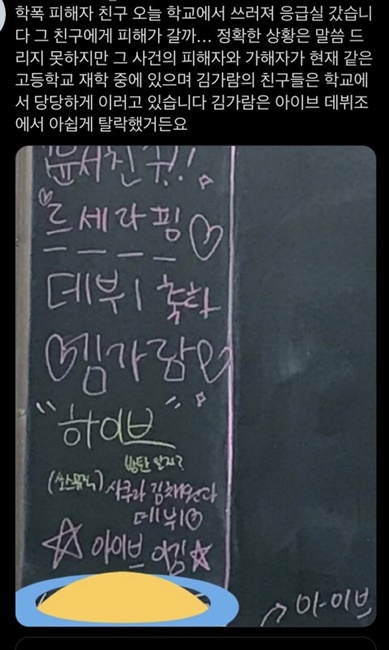 학폭 피해자 친구 오늘 학교에서 쓰러져 응급실 갔습니
다 그 친구에게 피해가 갈까… 정확한 상황은 말씀 드
리지 못하지만 그 사건의 피해자와 가해자가 현재 같은
고등학교 재학 중에 있으며 김가람의 친구들은 학교에
서 당당하게 이러고 있습니다 김가람은 아이브 데뷔조
에서 아쉽게 탈락했거든요
르세라핌
데뷔 축하
김가람
"하이브"
방탄 알지?
(쏘스뮤직) 사쿠라 김채원과
데뷔
아이브 이김
아이브